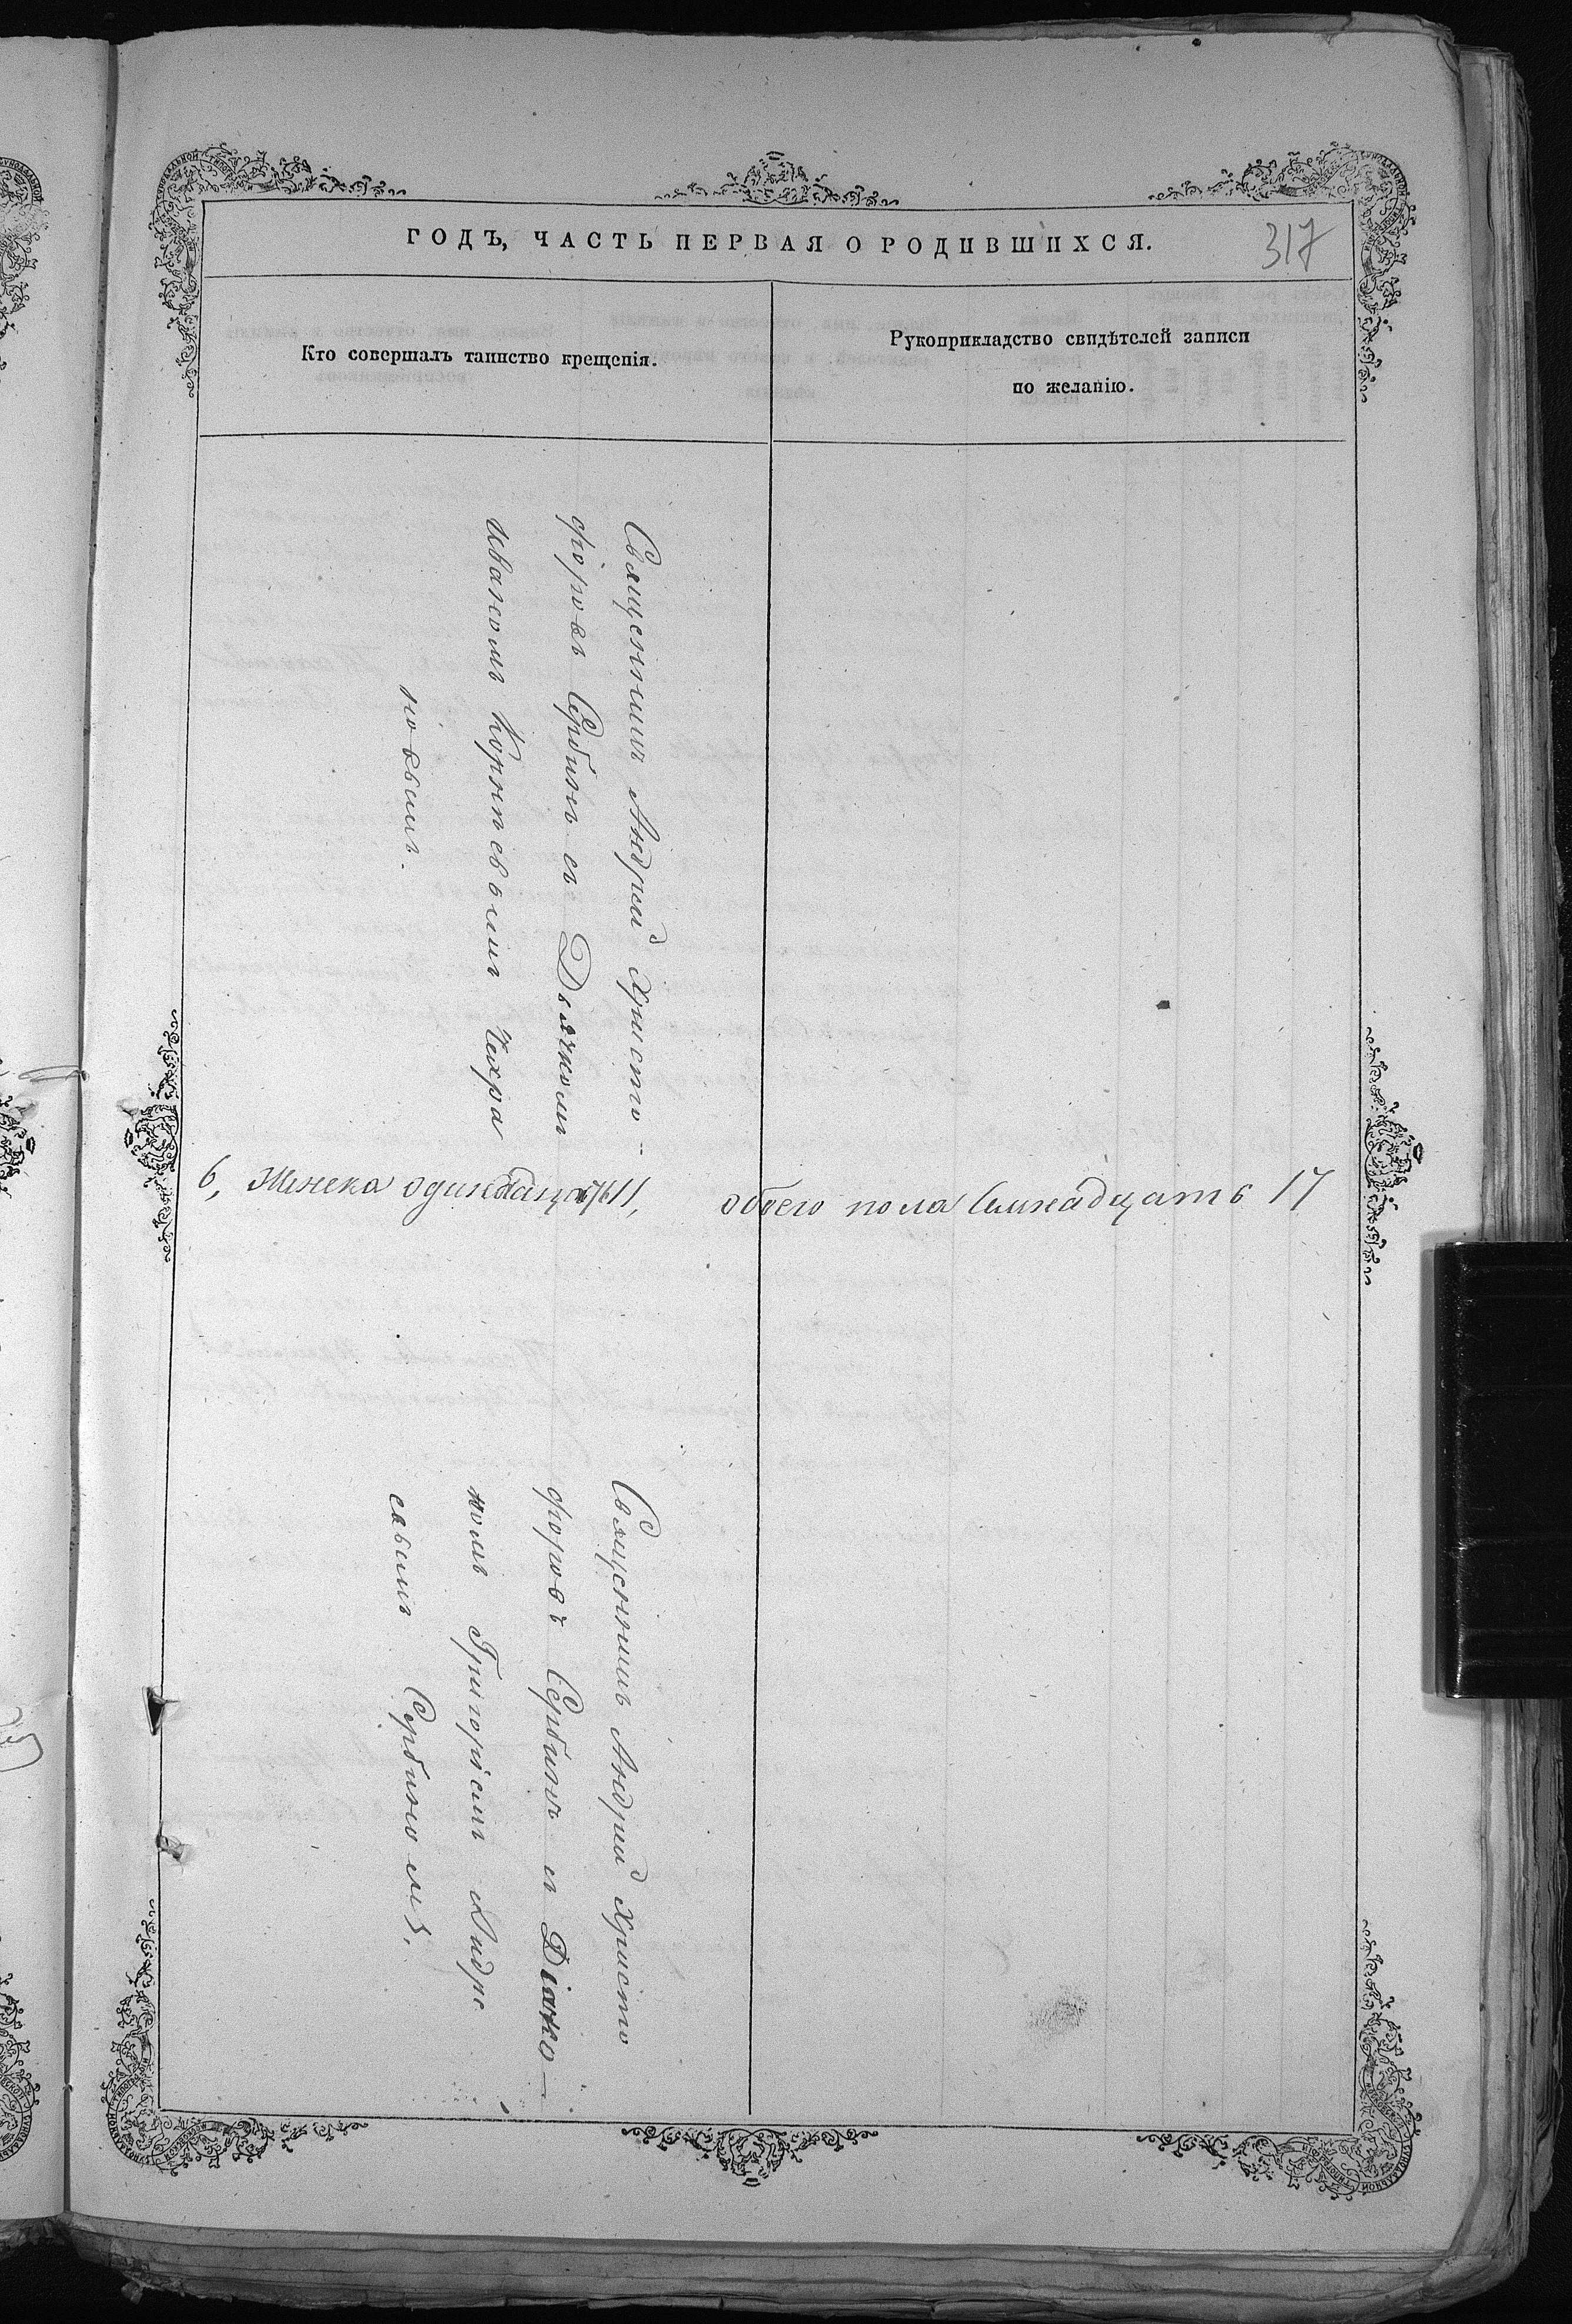 ГОДЪ, ЧАСТЬ ПЕРВАЯ О РОДИВШИХСЯ.
317
Кто совершалъ таинство крещенія.
Рукоприкладство свидѣтелей записи
по желанію.
Священникъ Андрей Христо-
форовъ Сербинъ съ Дьячкомъ
Иваномъ Корнѣевымъ Чехра
новымъ.
6, Женска одинадцать 11, обоего пола Семнадцать 17
Священникъ Андрей Христо
форовъ Сербинъ съ Діако-
номъ Григоріемъ Андре
евымъ Сербиномъ.